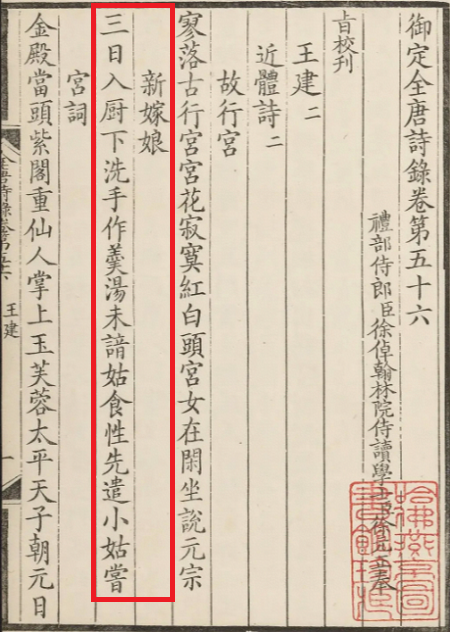 御定全唐詩錄卷第五十六
禮部侍郎臣徐倬翰林院侍讀學士臣徐元正奉
㫖校刊
王建二
近體詩二
故行宮
寥落古行宮宮花寂寞紅白頭宮女在閑坐說元宗
新嫁娘
三日入厨下洗手作羹湯未諳姑食性先遣小姑嘗
宮詞
金殿當頭紫閣重仙人掌上玉芙蓉太平天子朝元日
王建